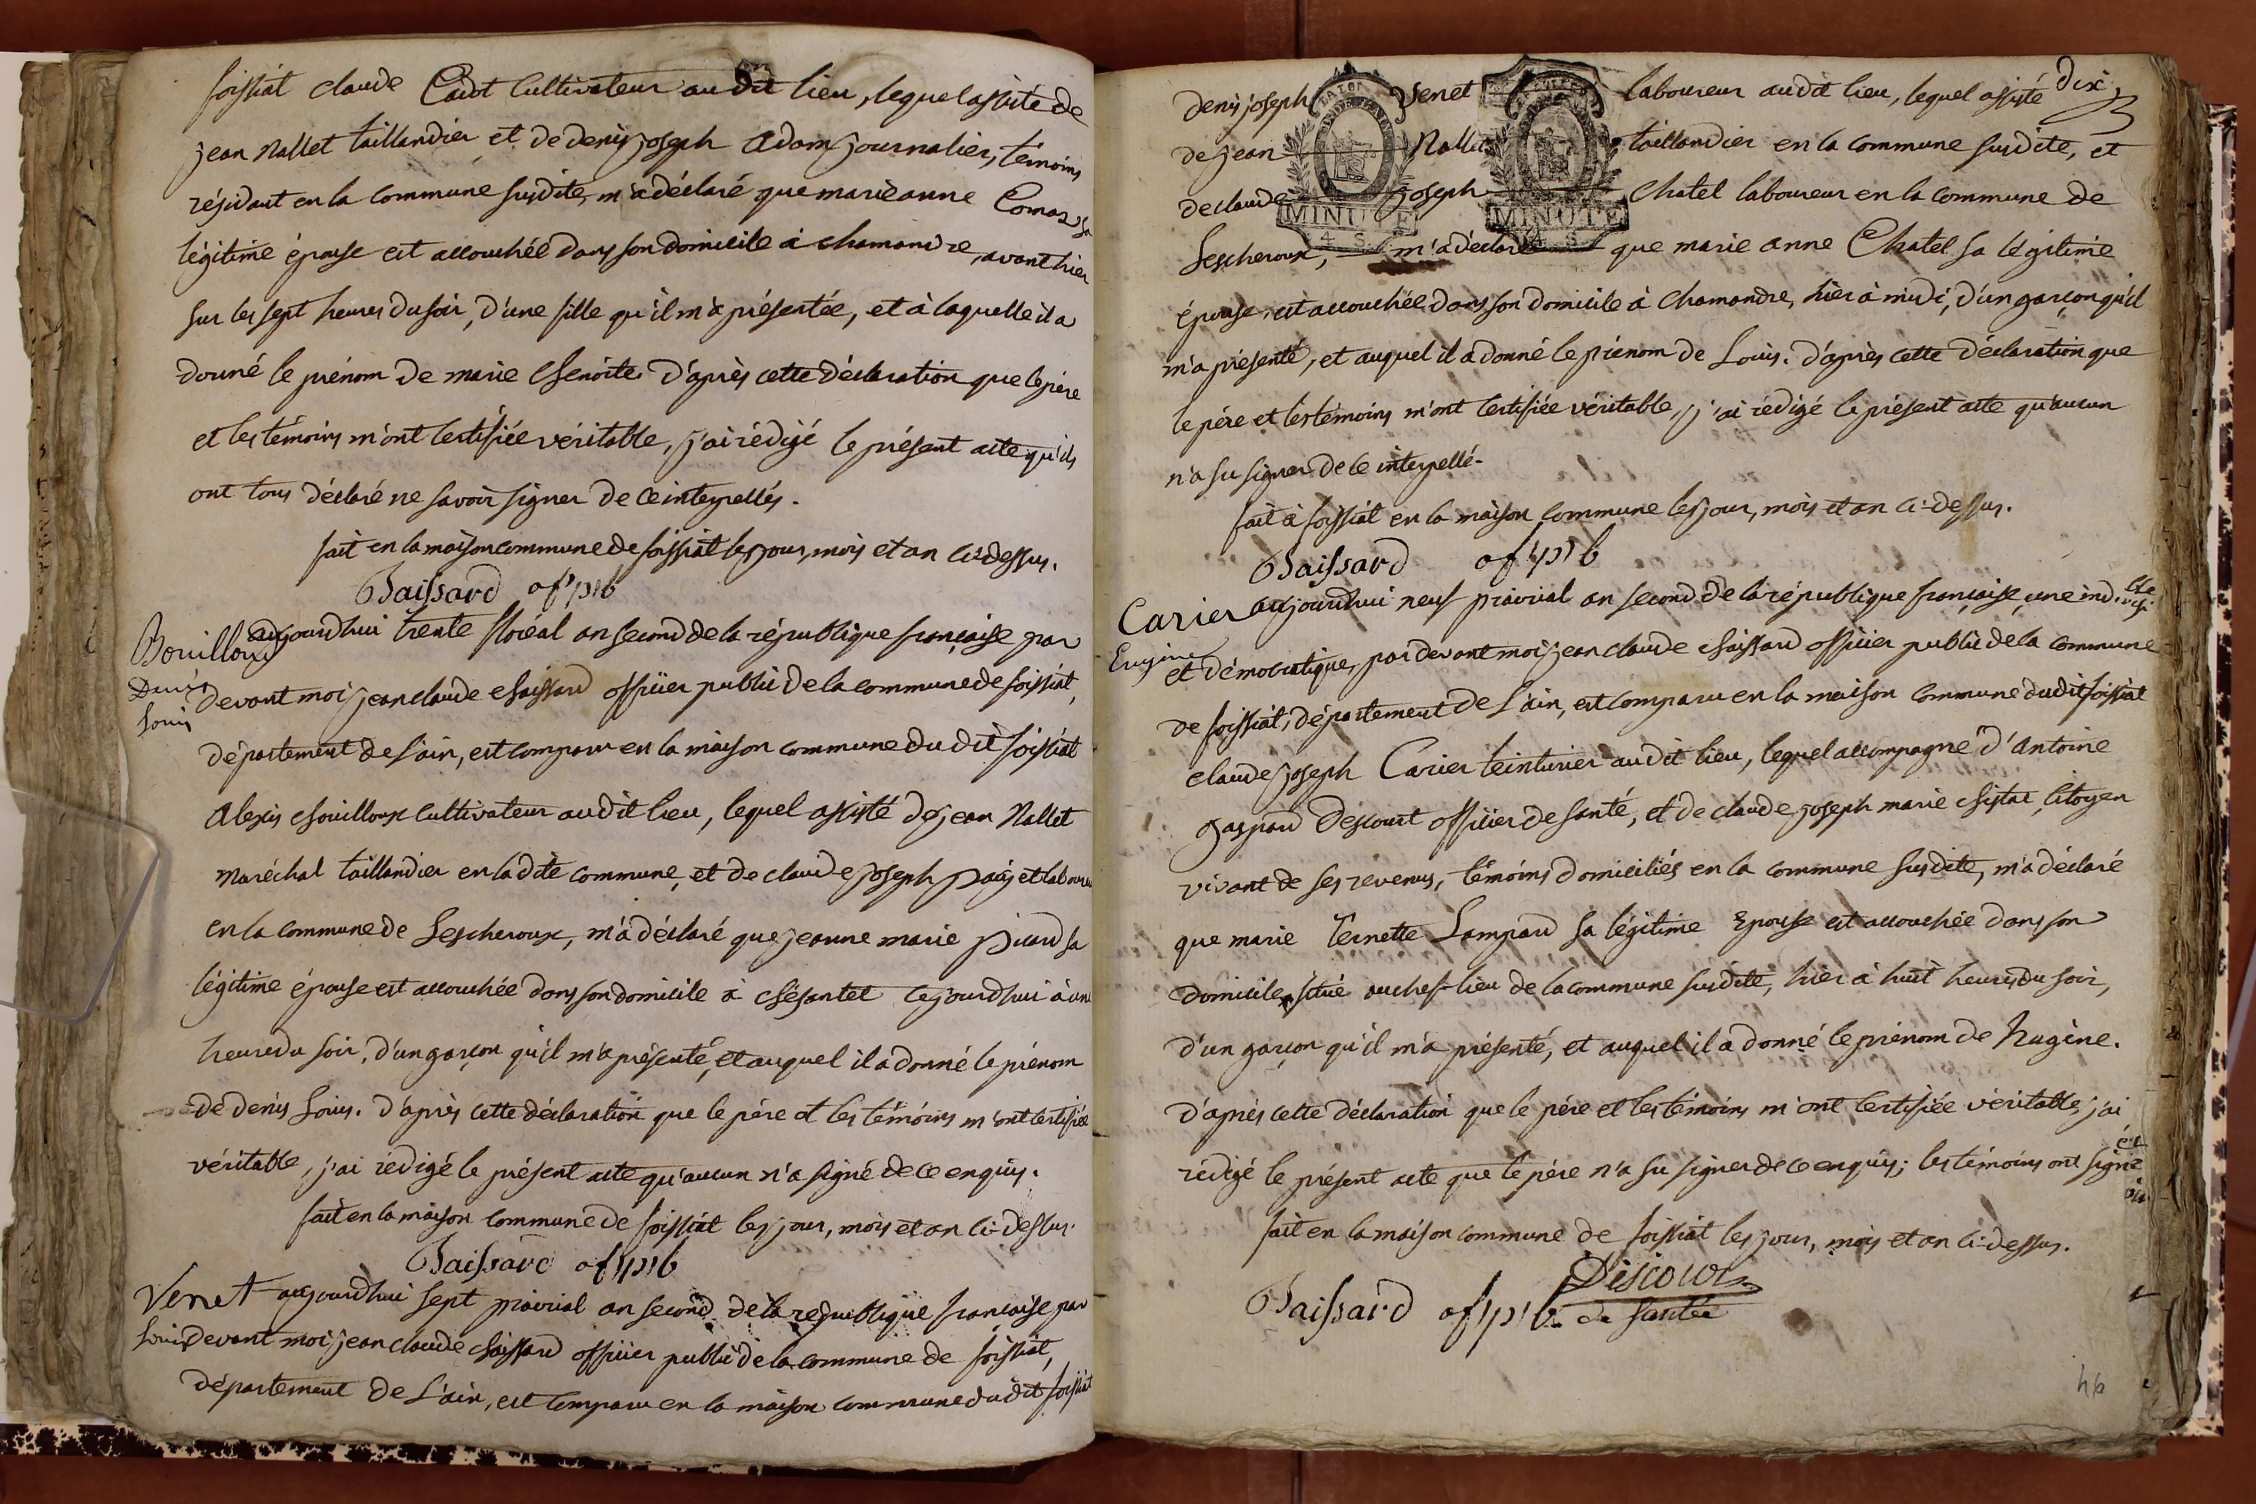 foissiat claude Cadot Cultivateur audit lieu, lequel assisté de
jean Nallet taillandier et de denis joseph Adam journalier, témoins
résidant en la commune susdite, m'a déclaré que marieanne Comas sa
légitime épouse est accouchée dans son domicile à chamandre, avant hier
sur les sept heures du soir, d'une fille qu'il m'a présentée, et à laquelle il a
donné le prénom de marie Benoite. d'après cette déclaration que le père
et les témoins m'ont certifiée véritable, j'ai rédigé le présent acte qu'ils
ont tous déclaré ne savoir signer de ce interpellés.
fait en la maison commune de foissiat les jour, mois et an ci-dessus.
Baissard of pub
Bouilloux
Denis
Louis
aujourdhui trente floréal an second de la république française par
devant moi jean claude Baissard officier public de la commune de foissiat,
département de l'ain, est comparu en la maison commune du dit foissiat
Alexis Bouilloux Cultivateur audit lieu, lequel assisté de jean Nallet
maréchal taillandier en la dite commune, et de claude joseph
en la commune de Lescheroux, m'a déclaré que jeanne marie Picard sa
légitime épouse est accouchée dans son domicile à Césantet cejourdhui à une
heure du soir, d'un garçon qu'il m'a présenté, et auquel il a donné le prénom
de denis Louis. d'après cette déclaration que le père et les témoins m'ont certifiée
véritable, j'ai rédigé le présent acte qu'aucun n'a signé de ce enquis.
fait en la maison commune de foissiat les jour, mois et an ci-dessus.
Baissard of pub
Venet
Louis
aujourdhui sept prairial an second de la république française par
devant moi jean claude Baissard officier public de la commune de foissiat,
département de L'ain, est comparu en la maison commune dudit foissiat
dix
denis joseph Venet laboureur audit lieu, lequel assisté
de jean Nallet taillandier en la commune susdite, et
de claude joseph Chatel laboureur en la commune de
Lescheroux, m'a déclaré que marie anne Chatel sa légitime
épouse, est accouchée dans son domicile à Chamandre, hier à midi, d'un garçon qu'il
m'a présenté, et auquel il a donné le prénom de Louis. d'après cette déclaration que
le père et les témoins m'ont certifiée véritable, j'ai rédigé le présent acte qu'aucun
n'a su signer de ce interpellé.
fait à foissiat en la maison commune les jour, mois et an ci-dessus.
MINUTE
4 S.
MINUTE
4 S.
Baissard of pub
Carier
Eugène
aujourdhui neuf prairial an second de la république française, une indivisible
et démocratique, par devant moi jean claude Baissard officier public de la commune
de foissiat, département de L'ain, est comparu en la maison commune dudit foissiat
claude joseph Carier teinturier audit lieu, lequel accompagné d'Antoine
gaspard Descourt officier de santé, et de claude joseph marie citoyen
vivant de ses revenus, témoins domiciliés en la commune susdite, m'a déclaré
que marie Ternette Lampard sa légitime Epouse est accouchée dans son
domicile situé au chef-lieu de la commune susdite, hier à huit heures du soir,
d'un garçon qu'il m'a présenté, et auquel il a donné le prénom de Eugène.
d'après cette déclaration que le père et les témoins m'ont certifiée véritable, j'ai
rédigé le présent acte que le père n'a su signer de ce enquis; les témoins ont signé
fait en la maison commune de foissiat les jour, mois et an ci-dessus.
Descour
Baissard of pub. de santée